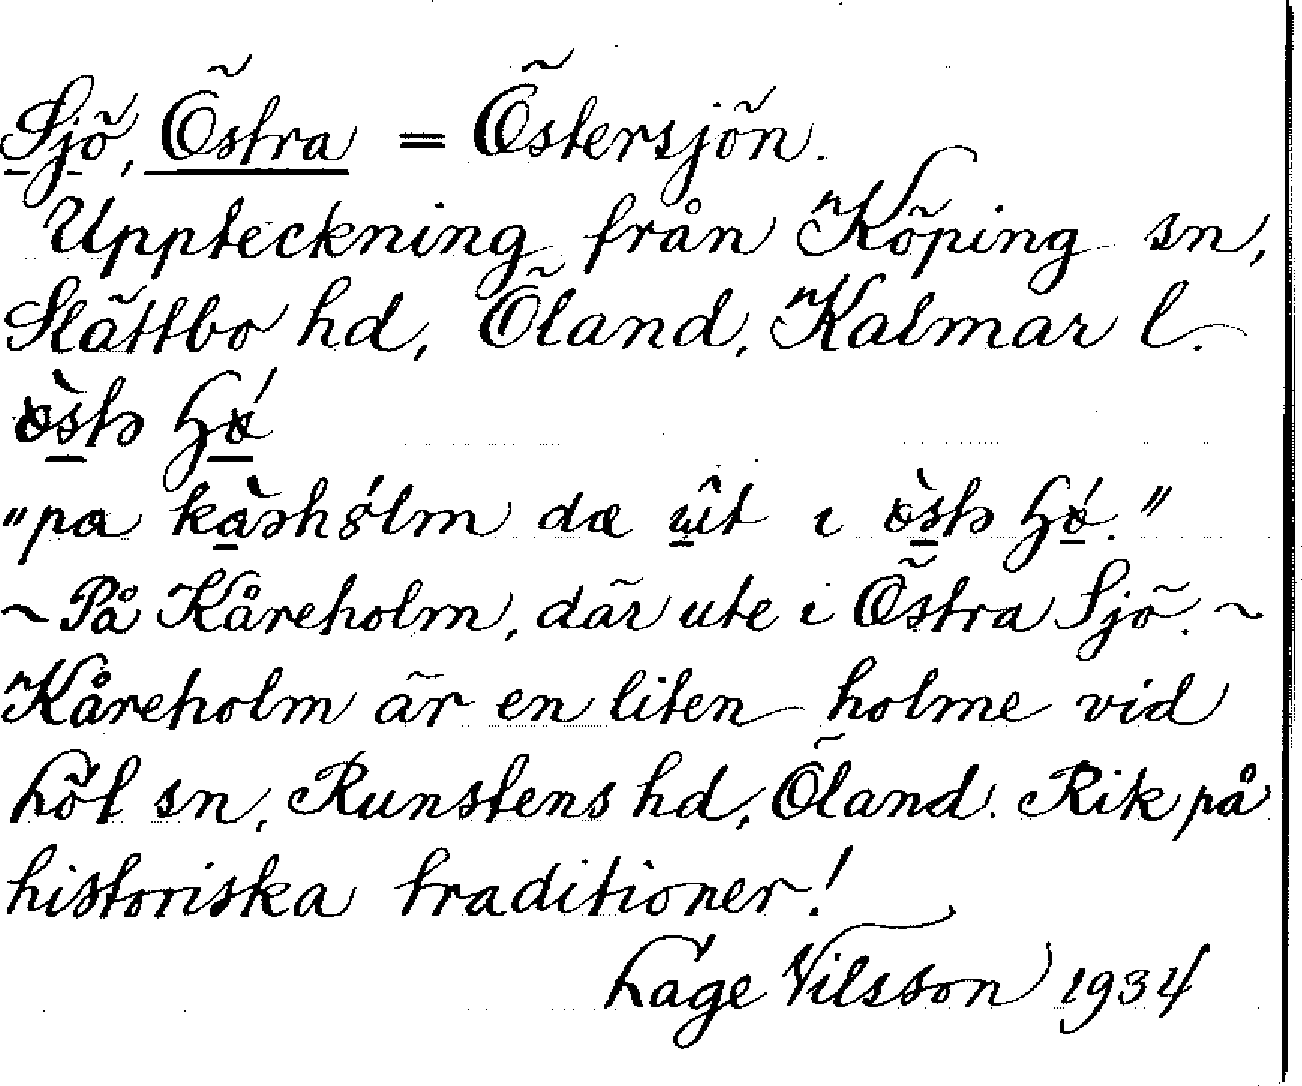 Sjö, Östra = Östersjön.
Uppteckning från Köping sn,
Slättbo hd, Öland, Kalmar l.
~ På Kåreholm, där ute i Östra Sjö. ~
Kåreholm är en liten holme vid
Löt sn, Runstens hd, Öland. Rik på
historiska traditioner!
Lage Nilsson 1934